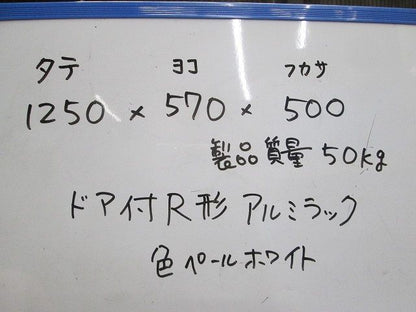 タテ ヨコ フカサ
1250 × 570 × 500
製品質量 50kg
ドア付R形 アルミラック
色 ペールホワイト